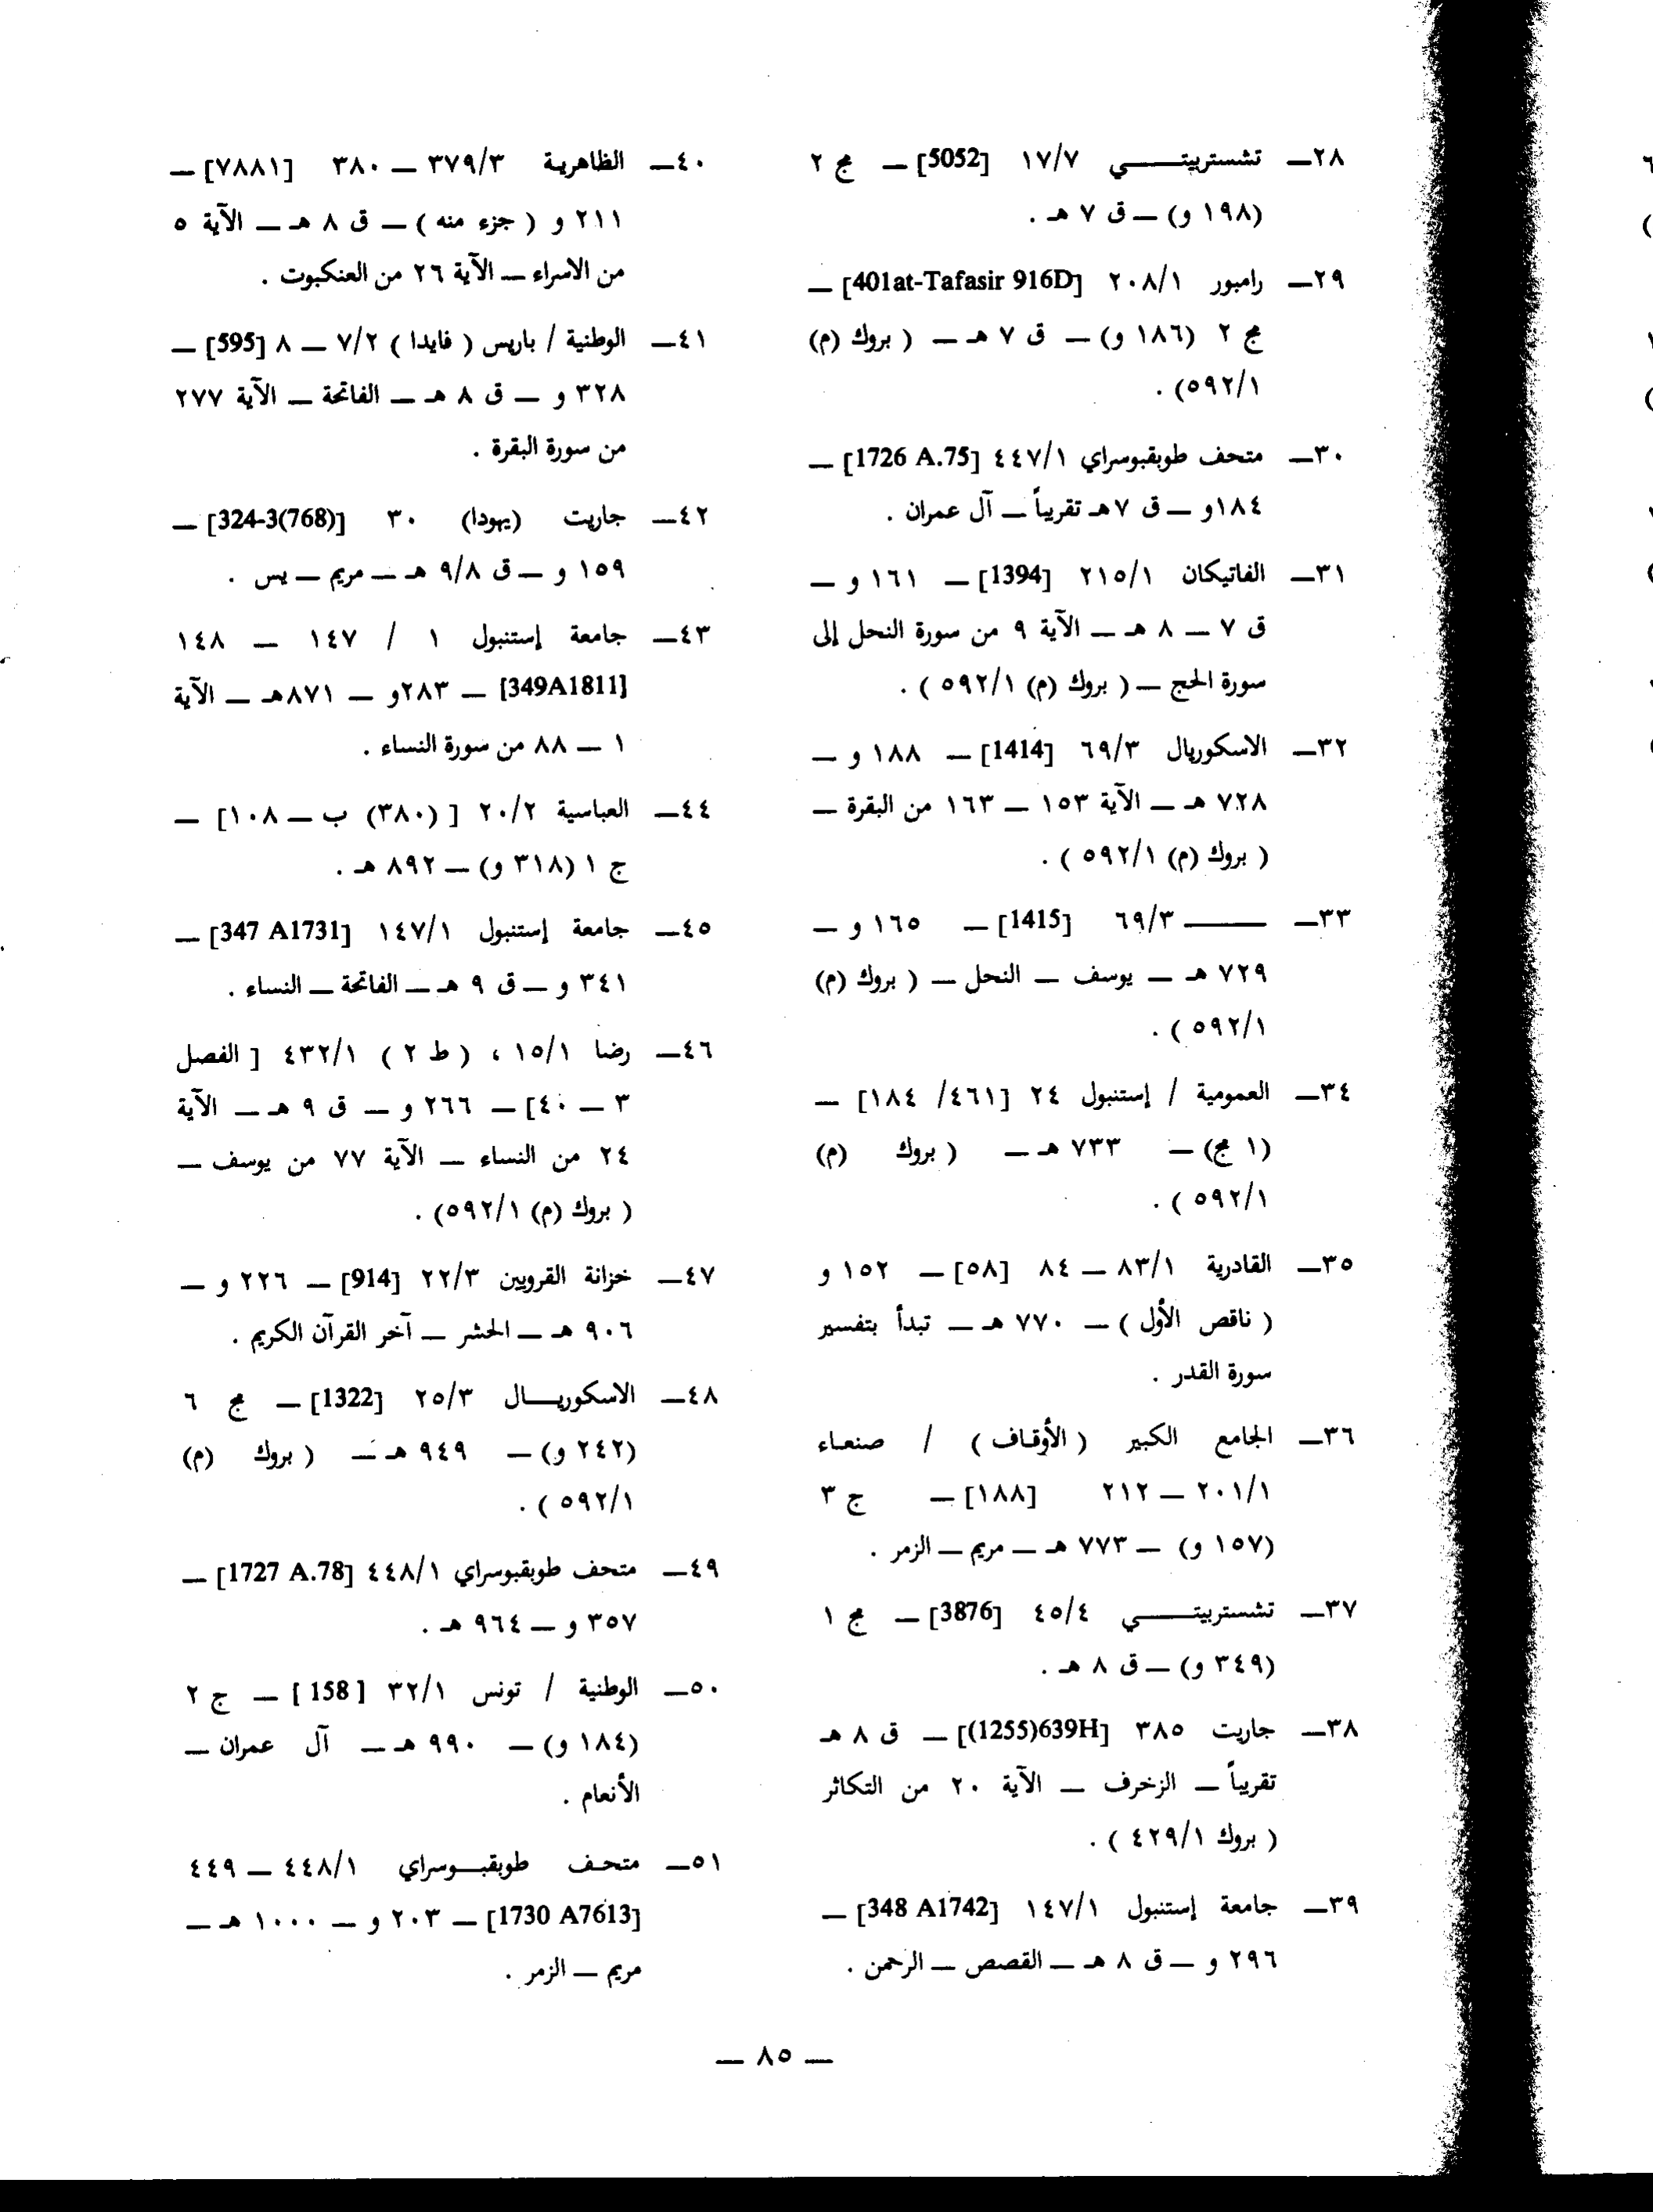 ٢٨ــ تشستربيتـــي ١٧/٧ [5052] ــ مج ٢
(١٩٨ و) ــ ق ٧ هـ .
٢٩ــ رامبور ٢٠٨/١ [401at-Tafasir 916D] ــ
مج ٢ (١٨٦ و) ــ ق ٧ هـ ــ ( بروك (م)
٥٩٢/١) .
٣٠ــ متحف طوبقبوسراي ٤٤٧/١ [1726 A.75] ــ
١٨٤و ــ ق ٧هـ تقريباً ــ آل عمران .
٣١ــ الفاتيكان ٢١٥/١ [1394] ــ ١٦١ و ــ
ق ٧ ــ ٨ هـ ــ الآية ٩ من سورة النحل إلى
سورة الحج ــ ( بروك (م) ٥٩٢/١ ) .
٣٢ــ الاسكوريال ٦٩/٣ [1414] ــ ١٨٨ و ــ
٧٢٨ هـ ــ الآية ١٥٣ ــ ١٦٣ من البقرة ــ
( بروك (م) ٥٩٢/١ ) .
٣٣ــ ـــــــ ٦٩/٣ [1415] ــ ١٦٥ و ــ
٧٢٩ هـ ــ يوسف ــ النحل ــ ( بروك (م)
٥٩٢/١ ) .
٣٤ــ العمومية / إستنبول ٢٤ [٤٦١/ ١٨٤] ــ
(١ مج) ــ ٧٣٣ هـ ــ ( بروك (م)
٥٩٢/١ ) .
٣٥ــ القادرية ٨٣/١ ــ ٨٤ [٥٨] ــ ١٥٢ و
( ناقص الأول ) ــ ٧٧٠ هـ ــ تبدأ بتفسير
سورة القدر .
٣٦ــ الجامع الكبير ( الأوقاف ) / صنعاء
٢٠١/١ ــ ٢١٢ [١٨٨] ــ ج ٣
(١٥٧ و) ــ ٧٧٣ هـ ــ مريم ــ الزمر .
٣٧ــ تشستربيتـــي ٤٥/٤ [3876] ــ مج ١
(٣٤٩ و) ــ ق ٨ هـ .
٣٨ــ جاريت ٣٨٥ [(1255)639H] ــ ق ٨ هـ
تقريباً ــ الزخرف ــ الآية ٢٠ من التكاثر
( بروك ٤٢٩/١ ) .
٣٩ــ جامعة إستنبول ١٤٧/١ [348 A1742] ــ
٢٩٦ و ــ ق ٨ هـ ــ القصص ــ الرحمن .
٤٠ــ الظاهرية ٣٧٩/٣ ــ ٣٨٠ [٧٨٨١] ــ
٢١١ و ( جزء منه ) ــ ق ٨ هـ ــ الآية ٥
من الاسراء ــ الآية ٢٦ من العنكبوت .
٤١ــ الوطنية / باريس ( فايدا ) ٧/٢ ــ ٨ [595] ــ
٣٢٨ و ــ ق ٨ هـ ــ الفاتحة ــ الآية ٢٧٧
من سورة البقرة .
٤٢ــ جاريت (يهودا) ٣٠ [324-3(768)] ــ
١٥٩ و ــ ق ٩/٨ هـ ــ مريم ــ يس .
٤٣ــ جامعة إستنبول ١ / ١٤٧ ــ ١٤٨
[349A1811] ــ ٢٨٣و ــ ٨٧١هـ ــ الآية
١ ــ ٨٨ من سورة النساء .
٤٤ــ العباسية ٢٠/٢ [ (٣٨٠) ب ــ ١٠٨] ــ
ج ١ (٣١٨ و) ــ ٨٩٢ هـ .
٤٥ــ جامعة إستنبول ١٤٧/١ [347 A1731] ــ
٣٤١ و ــ ق ٩ هـ ــ الفاتحة ــ النساء .
٤٦ــ رضا ١٥/١ ، ( ط ٢ ) ٤٣٢/١ [ الفصل
٣ ــ ٤٠] ــ ٢٦٦ و ــ ق ٩ هـ ــ الآية
٢٤ من النساء ــ الآية ٧٧ من يوسف ــ
( بروك (م) ٥٩٢/١) .
٤٧ــ خزانة القرويين ٢٢/٣ [914] ــ ٢٢٦ و ــ
٩٠٦ هـ ــ الحشر ــ آخر القرآن الكريم .
٤٨ــ الاسكوريـــال ٢٥/٣ [1322] ــ مج ٦
(٢٤٢ و) ــ ٩٤٩ هـ ــ ( بروك (م)
٥٩٢/١ ) .
٤٩ــ متحف طوبقبوسراي ٤٤٨/١ [1727 A.78] ــ
٣٥٧ و ــ ٩٦٤ هـ .
٥٠ــ الوطنية / تونس ٣٢/١ [ 158 ] ــ ج ٢
(١٨٤ و) ــ ٩٩٠ هـ ــ آل عمران ــ
الأنعام .
٥١ــ متحـف طوبقبـــوسراي ٤٤٨/١ ــ ٤٤٩
[1730 A7613] ــ ٢٠٣ و ــ ١٠٠٠ هـ ــ
مريم ــ الزمر .
ــ ٨٥ ــ